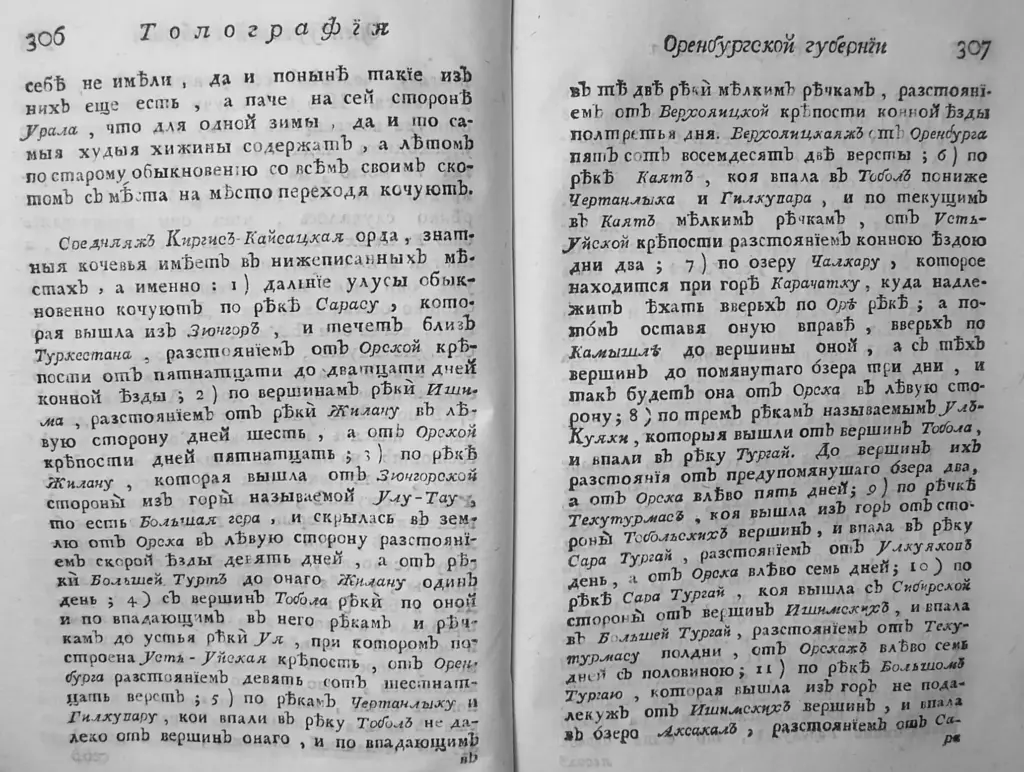 306 Топографїя
себѣ не имѣли , да и понынѣ такїе изъ
нихъ еще есть , а паче на сей сторонѣ
Урала , что для одной зимы , да и то са-
мыя худыя хижины содержатъ , а лѣтомъ
по старому обыкновенїю со всѣмъ своимъ ско-
томъ съ мѣста на мѣсто переходя кочуютъ.
Соедняяжъ Киргисъ-Кайсацкая орда , знат-
ныя кочевья имѣетъ въ нижеписанныхъ мѣ-
стахъ , а именно : 1 ) дальнїе улусы обык-
новенно кочуютъ по рѣкѣ Сарасу , кото-
рая вышла изъ Зюнгоръ , и течетъ близъ
Туркестана , разстоянїемъ отъ Орской крѣ-
пости отъ пятнатцати до дватцати дней
конной ѣзды ; 2 ) по вершинамъ рѣки Иши-
ма , разстоянїемъ отъ рѣки Жилану въ лѣ-
вую сторону дней шесть , а отъ Орской
крѣпости дней пятнатцать ; 3 ) по рѣкѣ
Жилану , которая вышла отъ Зюнгорской
стороны изъ горы называемой Улу-Тау ,
то есть Большая гора , и скрылась въ зем-
лю отъ Орска въ лѣвую сторону разстоянї-
емъ скорой ѣзды девять дней , а отъ рѣ-
ки Большей Туртъ до онаго Жилану одинъ
день ; 4 ) съ вершинъ Тобола рѣки по оной
и по впадающимъ въ него рѣкамъ и рѣч-
камъ до устья рѣки Уя , при которомъ по-
строена Усть - Уйская крѣпость , отъ Орен-
бурга разстоянїемъ девять сотъ шестнат-
цать верстъ ; 5 ) по рѣкамъ Чертанлыку и
Гилкупару , кои впали въ рѣку Тоболъ не да-
леко отъ вершинъ онаго , и по впадающимъ
въ
Оренбургской губернїи 307
въ тѣ двѣ рѣки мѣлкимъ рѣчкамъ , разстоянї-
емъ отъ Верхояицкой крѣпости конной ѣзды
полтретья дня. Верхояицкаяжъ отъ Оренбурга
пять сотъ восемдесятъ двѣ версты ; 6 ) по
рѣкѣ Каятъ , коя впала въ Тоболъ пониже
Чертанлыка и Гилкупара , и по текущимъ
въ Каятъ мѣлкимъ рѣчкамъ , отъ Усть-
Уйской крѣпости разстоянїемъ конною ѣздою
дни два ; 7 ) по озеру Чалкару , которое
находится при горѣ Карачатку , куда надле-
житъ ѣхать вверьхъ по Орѣ рѣкѣ ; а по-
томъ оставя оную вправѣ , вверьхъ по
Камышлѣ до вершины оной , а съ тѣхъ
вершинъ до помянутаго озера три дни , и
такъ будетъ она отъ Орска въ лѣвую сто-
рону ; 8 ) по тремъ рѣкамъ называемымъ Улъ-
Куяхи , которыя вышли отъ вершинъ Тобола ,
и впали въ рѣку Тургай. До вершинъ ихъ
разстоянїя отъ предупомянушаго озера два,
а отъ Орска влѣво пять дней; 9 ) по рѣчкѣ
Текутурмасъ , коя вышла изъ горъ отъ сто-
роны Тобольскихъ вершинъ , и впала въ рѣку
Сара Тургай , разстоянїемъ отъ Улкуяковъ
день , а отъ Орска влѣво семь дней; 10 ) по
рѣкѣ Сара Тургай , коя вышла съ Сибирской
стороны отъ вершинъ Ишимскихъ , и впала
въ Большей Тургай , разстоянїемъ отъ Теку-
турмасу полдни , отъ Орскажъ влѣво семь
дней съ половиною ; 11 ) по рѣкѣ Большомъ
Тургаю , которая вышла изъ горъ не пода-
лекужъ отъ Ишимскихъ вершинъ , и впала
въ озеро Аксакалъ , разстоянїемъ отъ Са-
ра